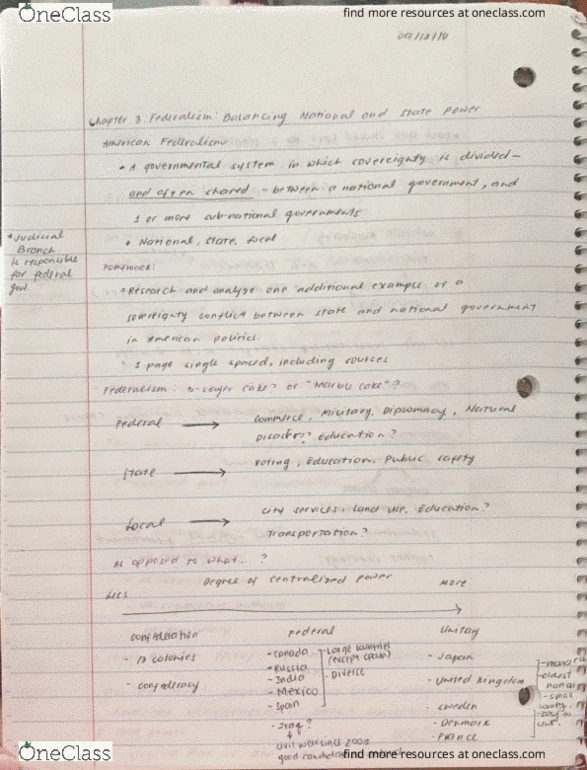 OneClass
find more resources at oneclass.com
Chapter 3. Federalism: Balancing National and State Power
American Federalism
• A governmental system in which sovereignty is divided –
and often shared – between a national government, and
1 or more sub-national governments
• National, State, local
* Judicial
Branch
is responsible
for federal
gov.
Homework:
• Research and analyze one additional example of a
sovereignty conflict between state and national government
in American politics.
• 1 page single spaced, including sources
Federalism: 3-Layer Cake? or "Marble Cake"?
Federal → Commerce, Military, Diplomacy, Natural
Disaster? Education?
State → Voting, Education, Public safety
Local → City services, land use, Education?
Transportation?
As opposed to what. ?
Degree of centralized power
Less More
Confederation Federal Unitary
- 13 colonies
- confederacy
- Canada
- Russia
- India
- Mexico
- Spain
- Large countries
(except Spain)
- Diverse
- Iraq?
until 2003
good
- Japan
- United Kingdom
- Sweden
- Denmark
- France
- oldest
- small
- easy to
OneClass
find more resources at oneclass.com